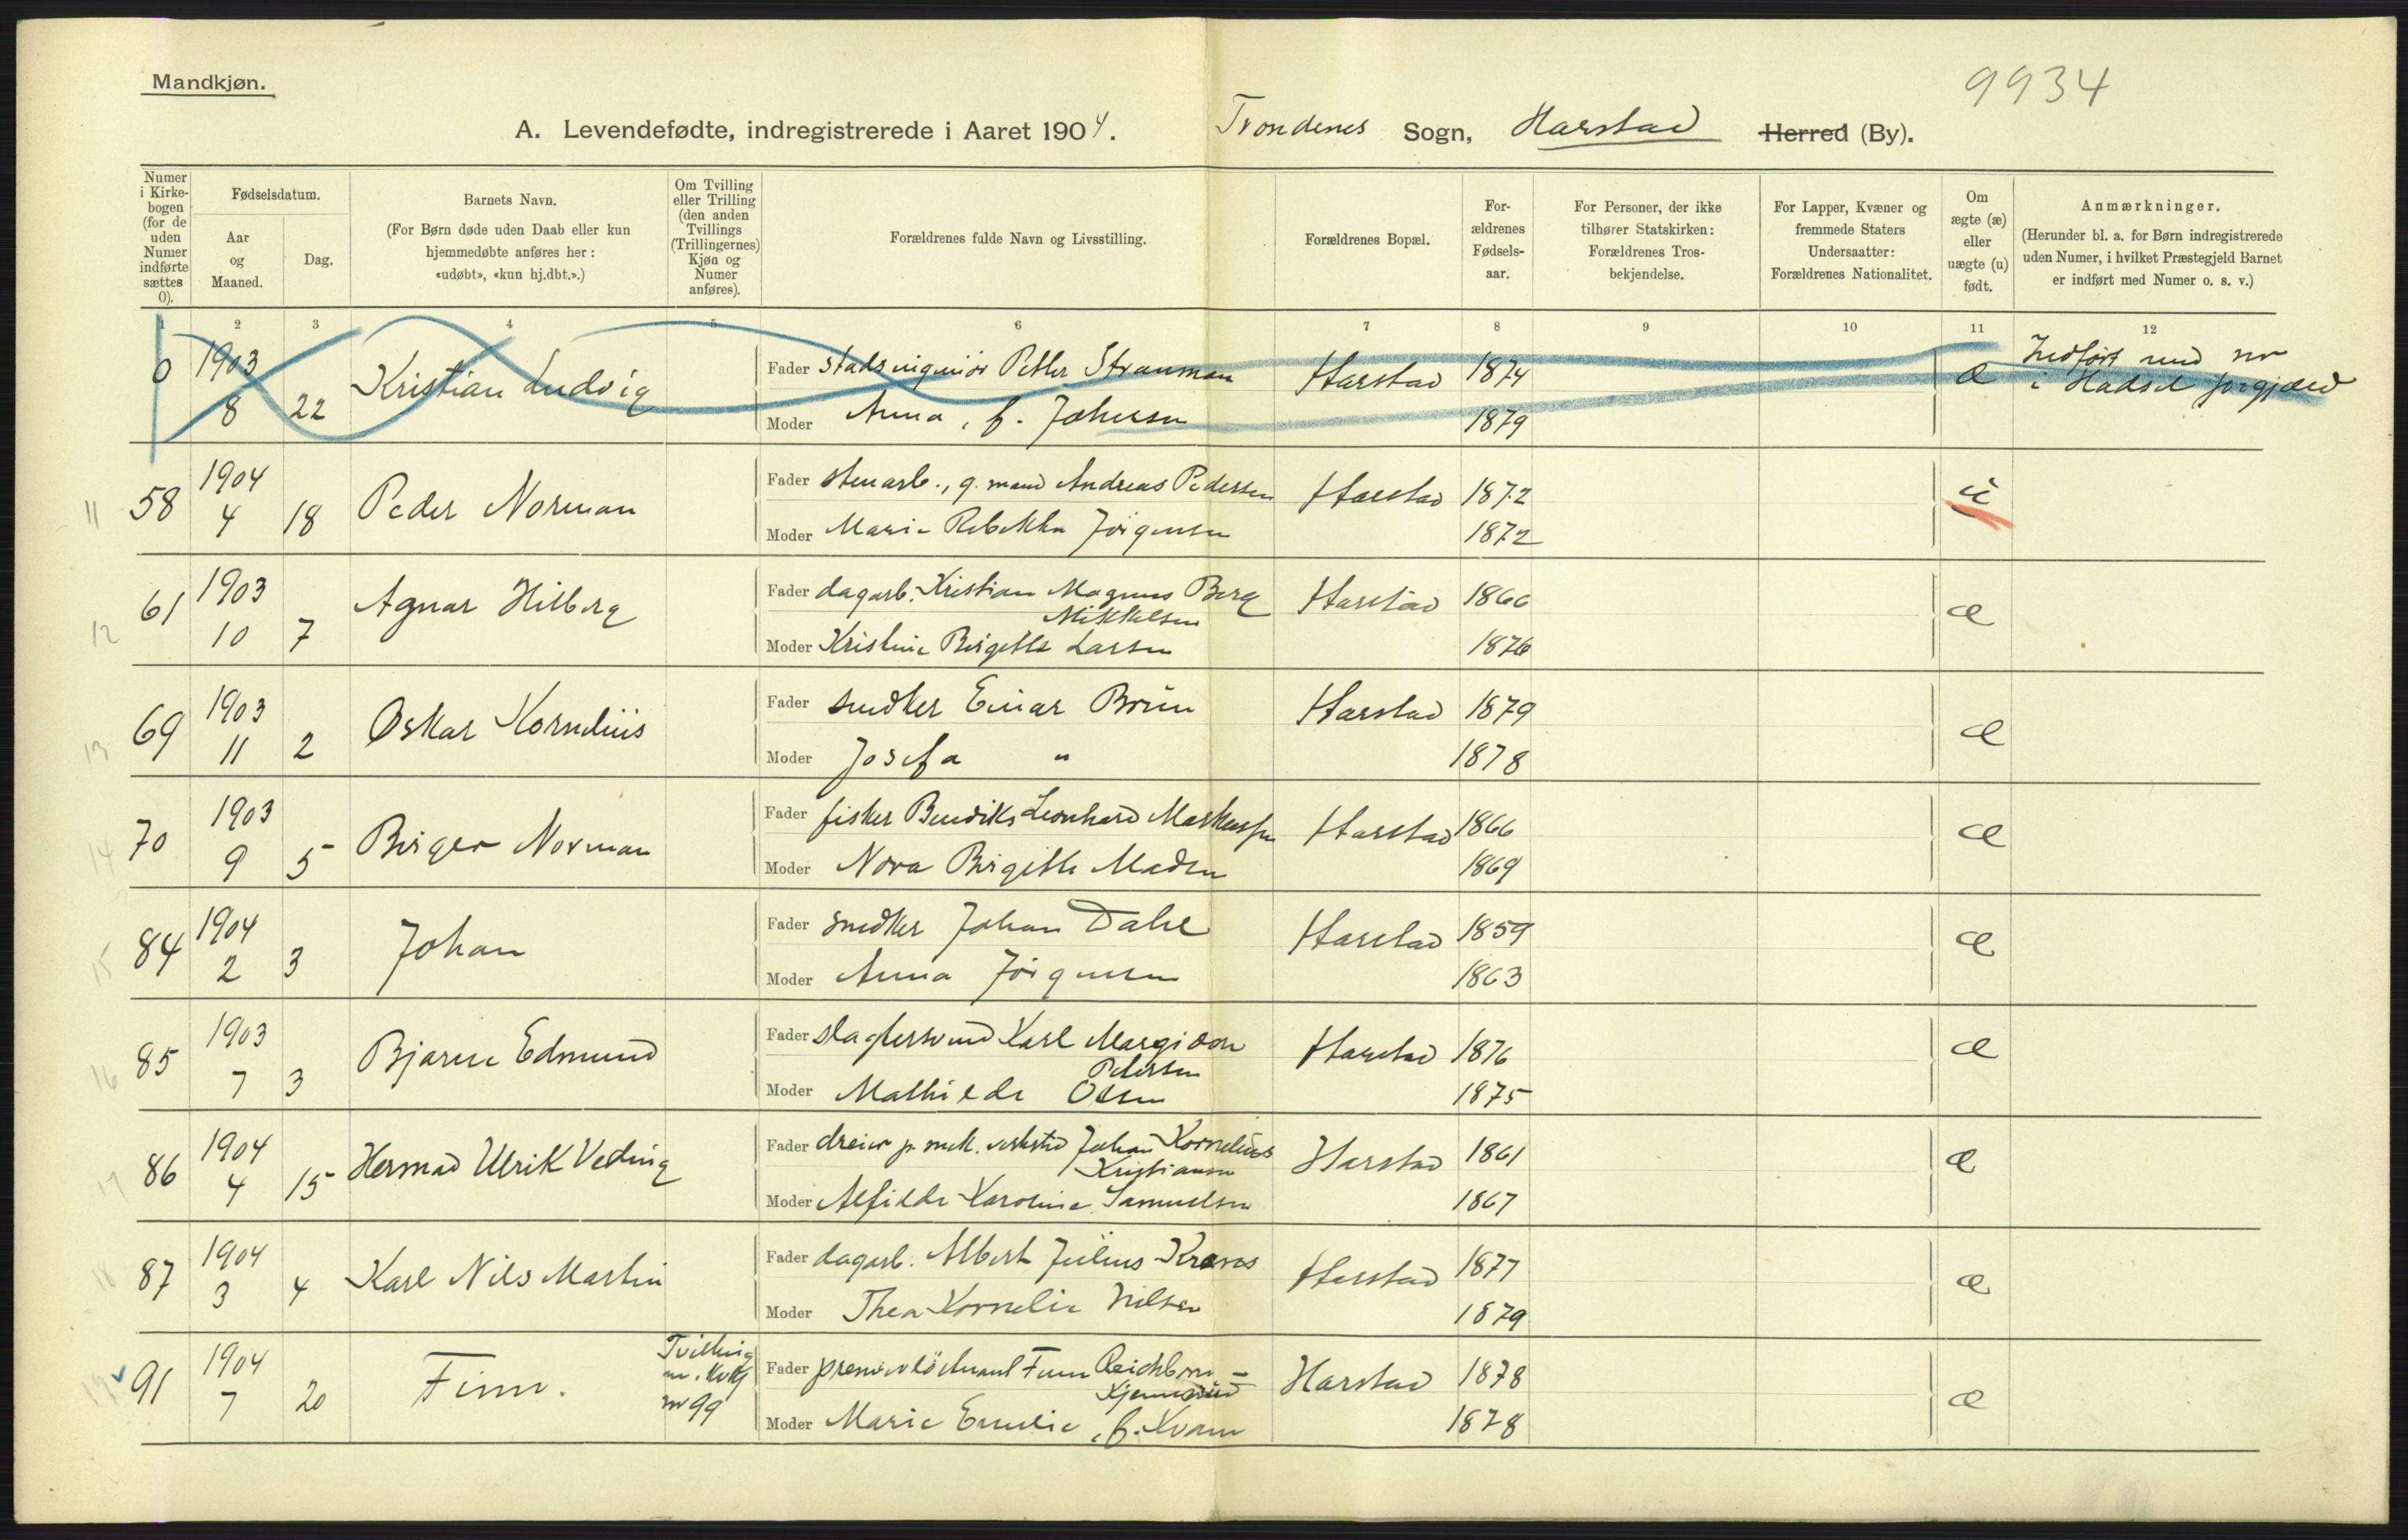 Mandkjøn.
9934
A. Levendefødte, indregistrerede i Aaret 1904. Trondenes Sogn, Harstad Herred (By).
Numer i Kirkebogen (for de uden Numer indførte sættes 0).
Fødselsdatum.
Aar og Maaned.
Dag.
Barnets Navn.
(For Børn døde uden Daab eller kun hjemmedøbte anføres her: «udøbt», «kun hj.dbt.».)
Om Tvilling eller Trilling (den anden Tvillings (Trillingernes) Kjøn og Numer anføres).
Forældrenes fulde Navn og Livsstilling.
Forældrenes Bopæl.
Forældrenes Fødselsaar.
For Personer, der ikke tilhører Statskirken: Forældrenes Trosbekjendelse.
For Lapper, Kvæner og fremmede Staters Undersaatter: Forældrenes Nationalitet.
Om ægte (æ) eller uægte (u) født.
Anmærkninger.
(Herunder bl. a. for Børn indregistrerede uden Numer, i hvilket Præstegjeld Barnet er indført med Numer o. s. v.)
1 2 3 4 5 6 7 8 9 10 11 12
0 1903 8 22 Kristian Ludvig
Fader stadsingeniör Petter Strauman Harstad 1874 æ
Moder Anna, f. Johnsen 1879
Indført med nr
i Hadsel prgjæld
11 58 1904 4 18 Peder Norman
Fader stenarb., g. mand Andreas Pedersen Harstad 1872 ŭ
Moder Marie Rebekka Jörgensen 1872
12 61 1903 10 7 Agnar Hilberg
Fader dagarb. Kristian Magnus Berg Harstad 1866 æ
Mikkelsen
Moder Kristine Birgitte Larsen 1876
13 69 1903 11 2 Oskar Kornelius
Fader snedker Einar Brun Harstad 1879 æ
Moder Josefa " 1878
14 70 1903 9 5 Birger Norman
Fader fisker Bendiks Leonhard Markussen Harstad 1866 æ
Moder Nora Birgitte Madsen 1869
15 84 1904 2 3 Johan
Fader snedker Johan Dahl Harstad 1859 æ
Moder Anna Jörgensen 1863
16 85 1903 7 3 Bjarne Edmund
Fader slagtersvend Karl Margido Harstad 1876 æ
Pedersen
Moder Mathilde Olsen 1875
17 86 1904 4 15 Hermod Ulrik Veding
Fader dreier p. mek. verksted Johan Kornelius Harstad 1861 æ
Kristiansen
Moder Alfilde Karoline Samuelsen 1867
18 87 1904 3 4 Karl Nils Martin
Fader dagarb. Albert Julius Krænes Harstad 1877 æ
Moder Thea Kornelie Nilsen 1879
19 91 1904 7 20 Finn.
Tvilling
m. Kvkj
nr 99
Fader premierlöitnant Finn Reichborn- Harstad 1878 æ
Kjennerud
Moder Marie Emilie, f. Kvam 1878